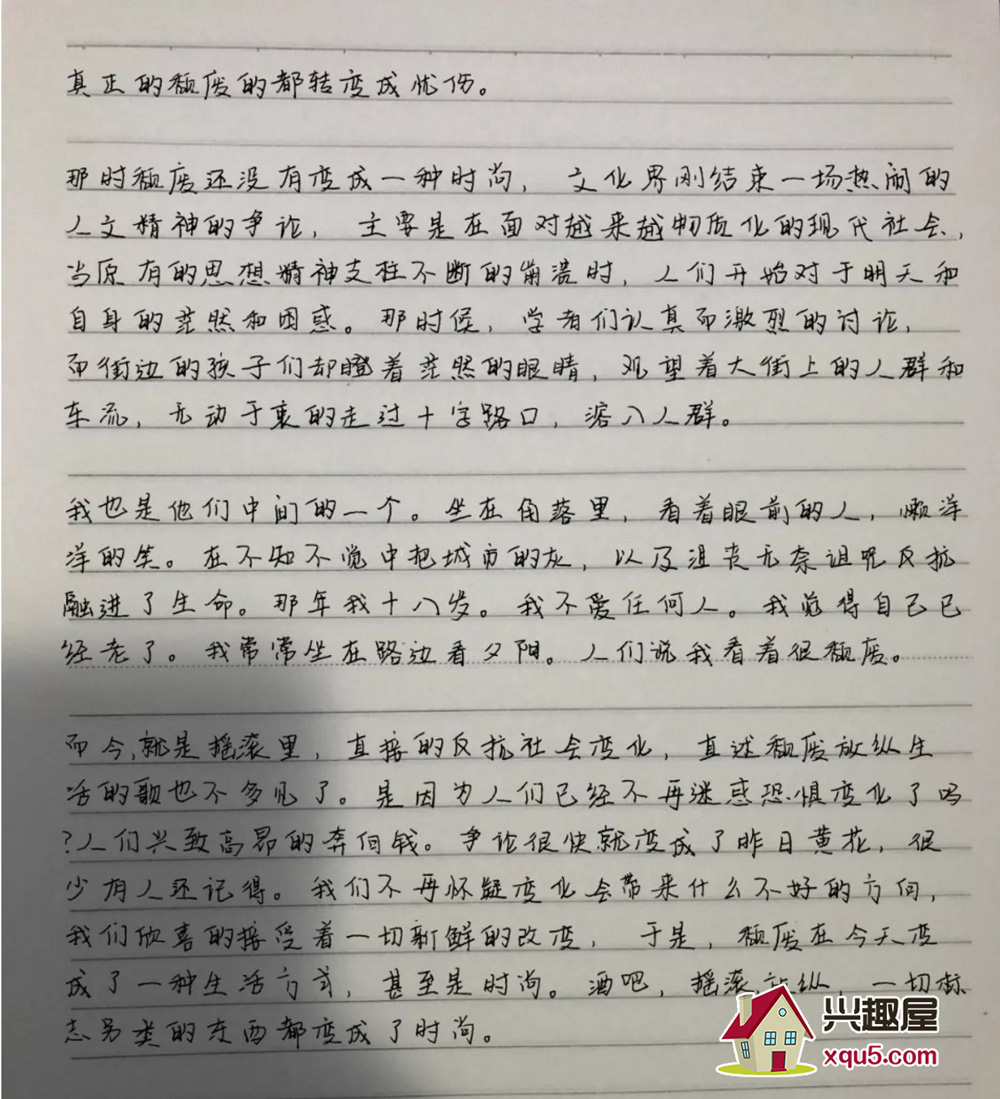 真正的颓废的都转变成忧伤。
那时颓废还没有变成一种时尚，文化界刚结束一场热闹的
人文精神的争论，主要是在面对越来越物质化的现代社会，
当原有的思想精神支柱不断的崩溃时，人们开始对于明天和
自身的茫然和困惑。那时候，学者们认真而激烈的讨论，
而街边的孩子们却瞪着茫然的眼睛，观望着大街上的人群和
车流，无动于衷的走过十字路口，混入人群。
我也是他们中间的一个。坐在角落里，看着眼前的人，懒洋
洋的笑。在不知不觉中把城市的灰，以及沮丧无奈诅咒反抗
融进了生命。那年我十八岁。我不爱任何人。我觉得自己已
经老了。我常常坐在路边看夕阳。人们说我看着很颓废。
而今，就是摇滚里，直接的反抗社会变化，直述颓废放纵生
活的歌也不多见了。是因为人们已经不再迷惑恐惧变化了吗
？人们兴致高昂的奔向钱。争论很快就变成了昨日黄花，很
少有人还记得。我们不再怀疑变化会带来什么不好的方向，
我们欣喜的接受着一切新鲜的改变，于是，颓废在今天变
成了一种生活方式，甚至是时尚。酒吧，摇滚，放纵，一切标
志另类的东西都变成了时尚。
兴趣屋
xqu5.com